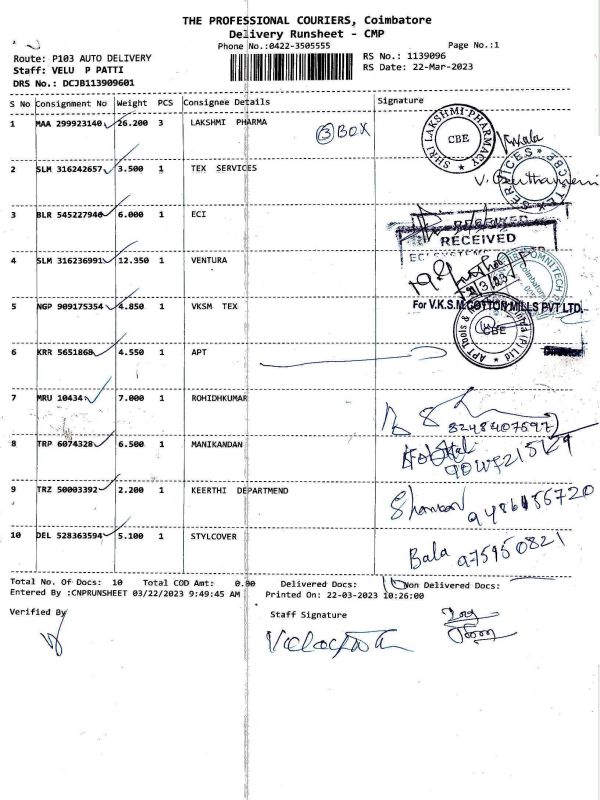 THE PROFESSIONAL COURIERS, Coimbatore
Delivery Runsheet - CMP
Phone No.:0422-3505555 Page No.:1
Route: P103 AUTO DELIVERY RS No.: 1139096
Staff: VELU P PATTI RS Date: 22-Mar-2023
DRS No.: DCJB113909601
S No Consignment No Weight PCS Consignee Details Signature
1 MAA 299923140 26.200 3 LAKSHMI PHARMA
3 BOX
SHRI LAKSHMI PHARMACY CBE
2 SLM 316242657 3.500 1 TEX SERVICES
TEX SERVICES CBE
3 BLR 545227940 6.000 1 ECI
RECEIVED
RECEIVED
4 SLM 316236991 12.350 1 VENTURA
5 NGP 909175354 4.850 1 VKSM TEX
For V.K.S.M.COTTON MILLS PVT LTD.
CBE
Director
6 KRR 5651868 4.550 1 APT
7 MRU 10434 7.000 1 ROHIDHKUMAR
8248407597
8 TRP 6074328 6.500 1 MANIKANDAN
9 TRZ 50003392 2.200 1 KEERTHI DEPARTMEND
10 DEL 528363594 5.100 1 STYLCOVER
Bala
Total No. Of Docs: 10 Total COD Amt: 0.00 Delivered Docs: Non Delivered Docs:
Entered By :CNPRUNSHEET 03/22/2023 9:49:45 AM Printed On: 22-03-2023 10:26:00
Verified By Staff Signature